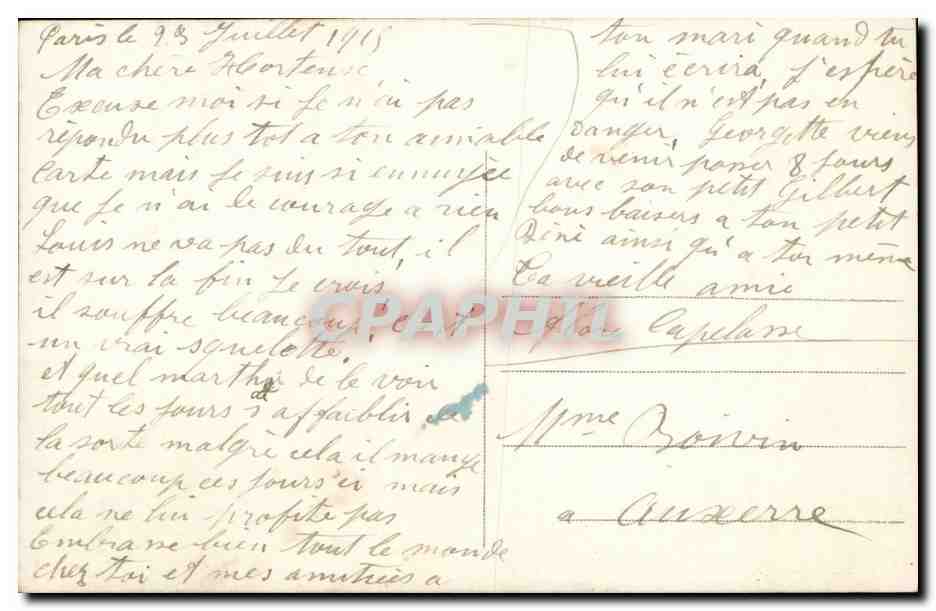 Paris le 23 Juillet 1915
Ma chère Hortense,
Excuse moi si Je n'ai pas
répondu plus tot a ton aimable
carte mais Je suis si ennuyée
que Je n'ai le courage a rien
Louis ne va pas du tout, il
est sur la fin Je crois,
il souffre beaucoup! c'est
un vrai squelette.
et quel marthir de le voir
tout les Jours s'affaiblir de
la sorte malgré cela il mange
beaucoup ces Jours ci mais
cela ne lui profite pas
Embrasse bien tout le monde
chez toi et mes amitiées a
ton mari quand tu
lui écrira, J'espère
qu'il n'est pas en
danger, Georgette viens
de venir passer 8 Jours
avec son petit Gilbert
bons baisers a ton petit
Réné ainsi qu'a toi même
Ta vieille amie
Capelasse
Mme Boivin
a Auxerre
CPAPHIL